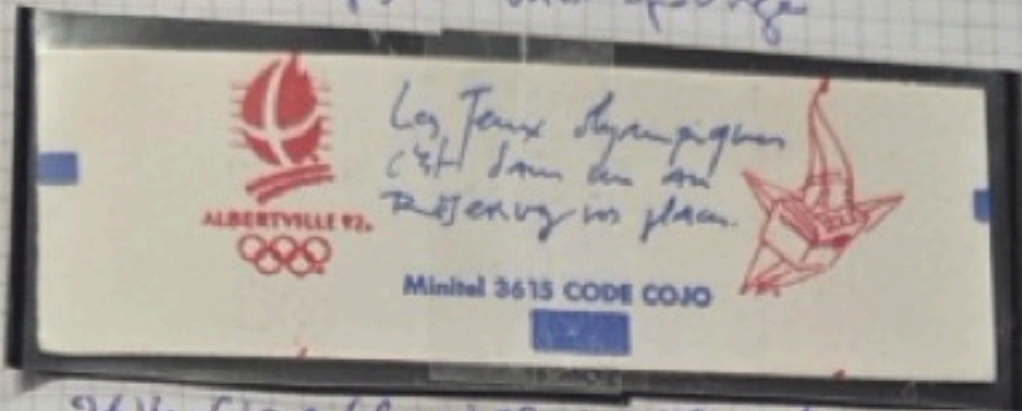 ALBERTVILLE 92
Les Jeux Olympiques
c'est dans un an
Réservez vos places.
Minitel 3615 CODE COJO